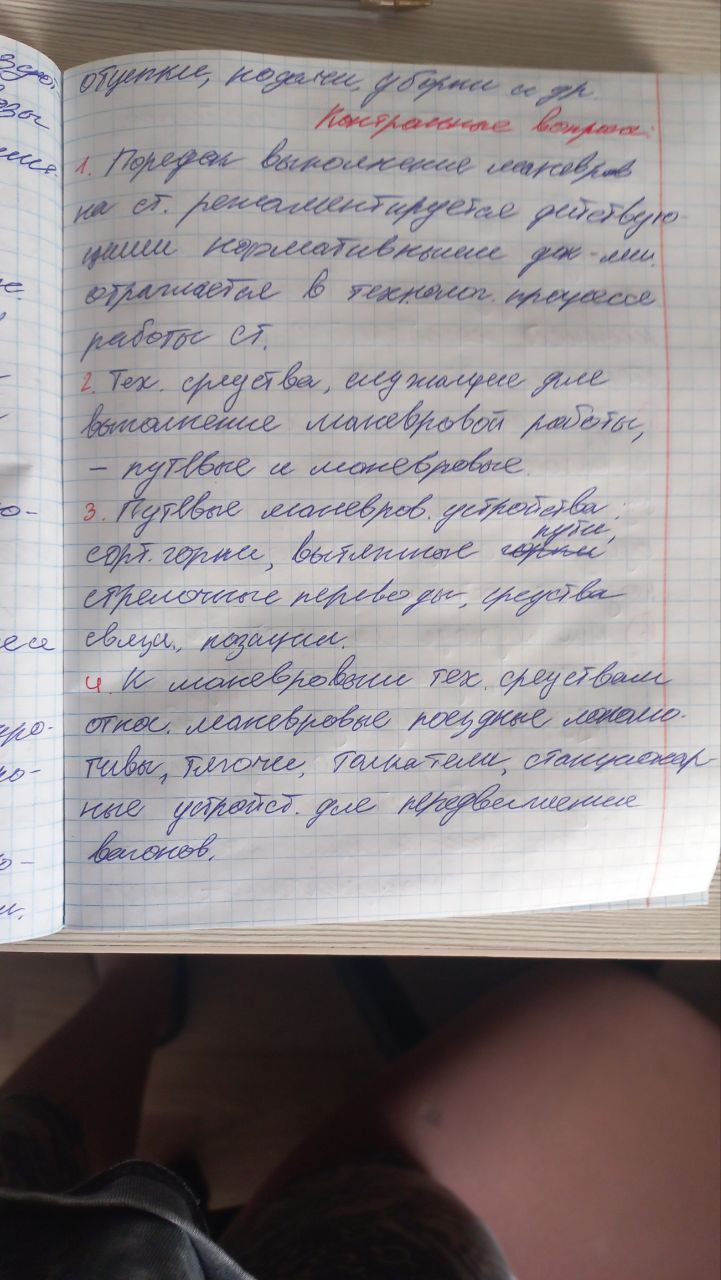 отцепки, подачи, уборки и др.
Контрольные вопросы:
1. Порядок выполнение маневров
на ст. регламентируется действую-
щими нормативными док-ми.
отражается в технолог. процессе
работы ст.
2. Тех. средства, служащие для
выполнение маневровой работы,
– путевые и маневровые.
3. Путевые маневров. устройства:
сорт. горки, вытяжные пути,
стрелочные переводы, средства
связи.,
4. К маневровым тех. средствам
относ. маневровые поездные локомо-
тивы, тягочи, толкатели, стационар-
ные устройст. для передвижение
вагонов.